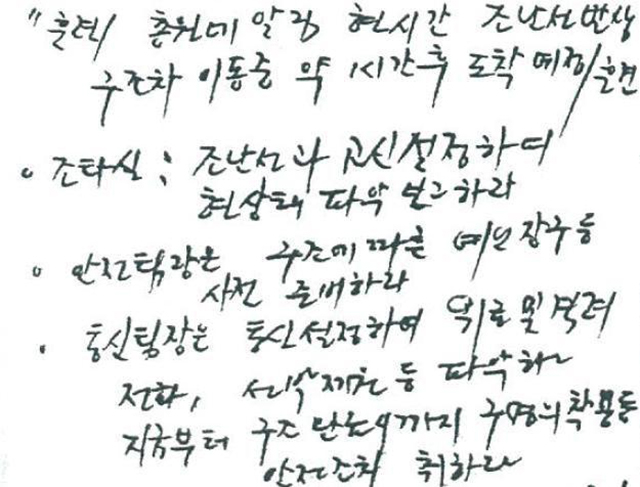 "훈련/ 총원에 알림 현시간 조난선발생
구조차 이동중 약 1시간후 도착예정/훈련
• 조타실: 조난선과 교신설정하여
현상태 파악 보고하라
• 안전팀장은 구조에 따른 예인장구등
사전 준비하라
• 통신팀장은 통신설정하여 위로 및 격려
전화, 선박제원 등 파악하고
지금부터 구조 완료시까지 구명의착용등
안전조치 취하라